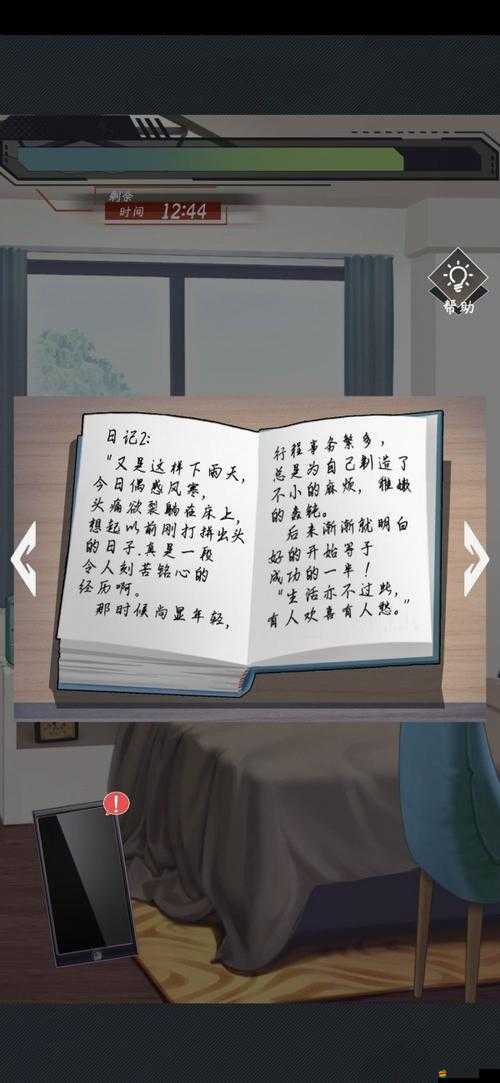 剩余
时间 12:44
帮助
日记2:
"又是这样下雨天，
今日偶感风寒，
头痛欲裂躺在床上，
想起以前刚打拼出头
的日子，真是一段
令人刻苦铭心的
经历啊。
那时候尚显年轻，
行程事务繁多，
总是为自己制造了
不小的麻烦，稚嫩
的轰轰。
后来渐渐就明白
好的开始等于
成功的一半！
"生活亦不过此，
有人欢喜有人愁。"
!